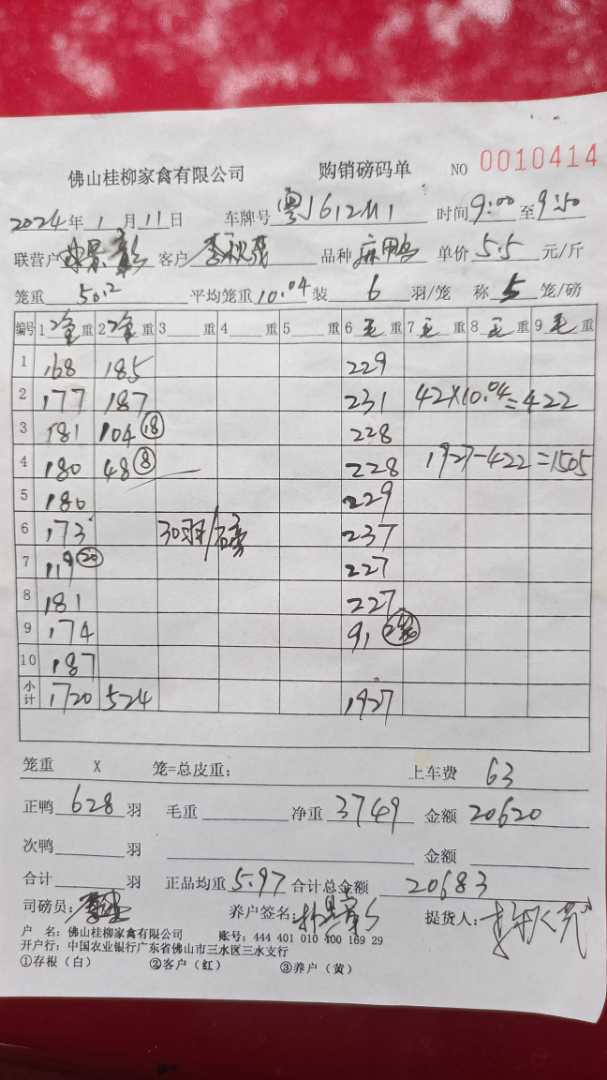 佛山桂柳家禽有限公司 购销磅码单 NO 0010414
2024年1月11日 车牌号 粤J612M1 时间9:00至9:50
联营户 客户 品种 麻鸭 单价5.5元/斤
笼重 50.2 平均笼重10.04装 6 羽/笼 称 5 笼/磅
编号 1 净重 2 净重 3 重 4 重 5 重 6 毛重 7 毛重 8 毛重 9 毛重
1 168 185 229
2 177 187 231 42×10.04=422
3 181 104 (18) 228
4 180 48 (8) 228 1927-422=1505
5 180 229
6 173 30羽/磅 237
7 119 (20) 227
8 181 227
9 174 91
10 187
小计 1720 524 1927
笼重 X 笼=总皮重: 上车费 63
正鸭 628 羽 毛重 净重 3749 金额 20620
次鸭 羽 金额
合计 羽 正品均重 5.97 合计总金额 20683
司磅员: 养户签名: 提货人:
户 名: 佛山桂柳家禽有限公司 账号: 444 401 010 400 169 29
开户行: 中国农业银行广东省佛山市三水区三水支行
①存根（白） ②客户（红） ③养户（黄）